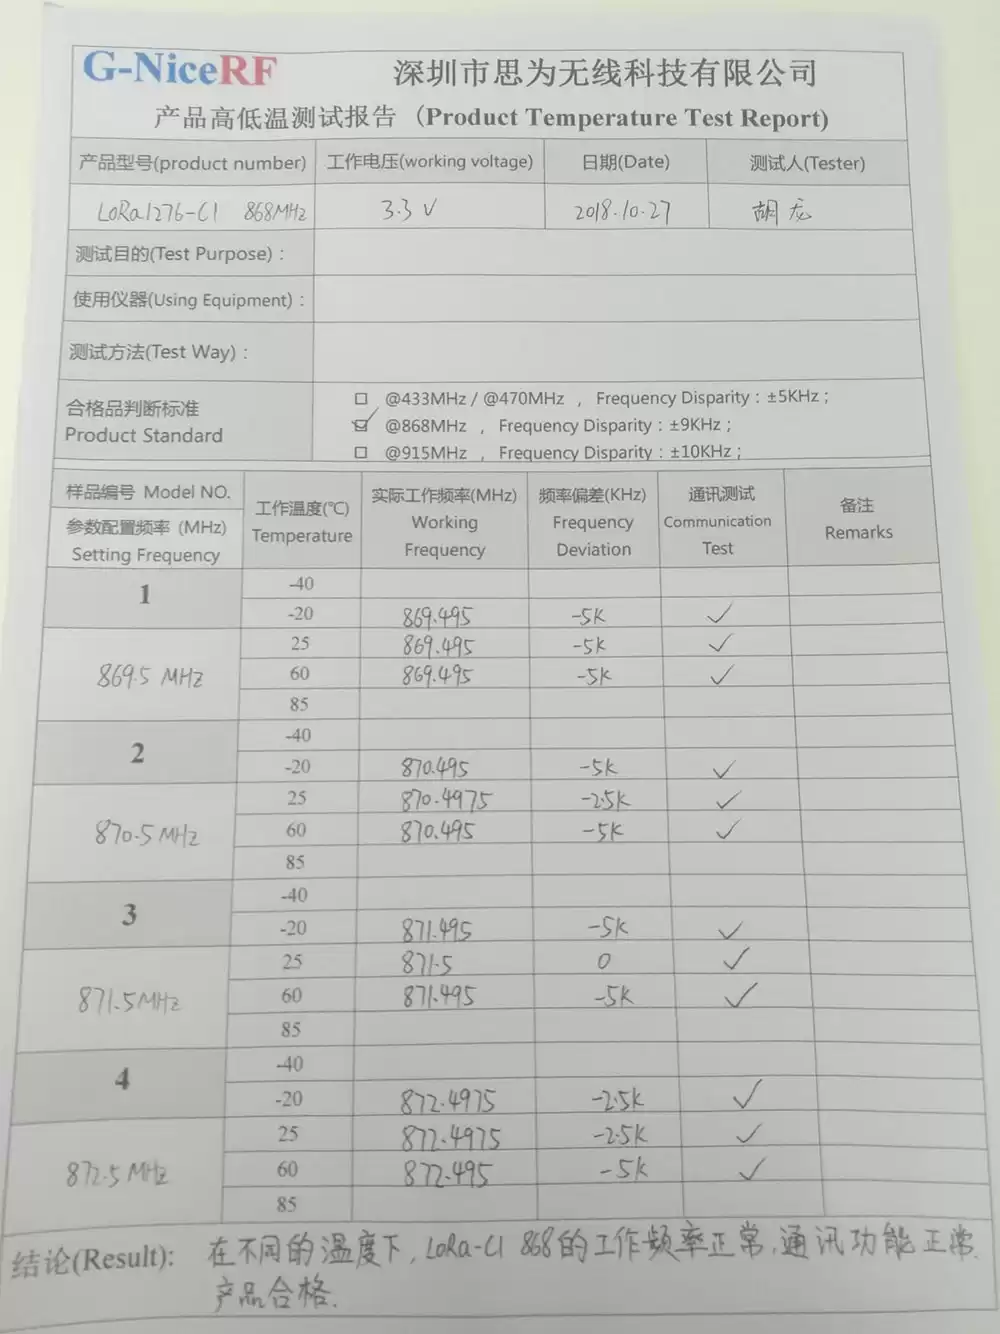 G-NiceRF 深圳市思为无线科技有限公司
产品高低温测试报告 (Product Temperature Test Report)
产品型号(product number) 工作电压(working voltage) 日期(Date) 测试人(Tester)
LoRa1276-C1 868MHz 3.3 V 2018.10.27 胡龙
测试目的(Test Purpose):
使用仪器(Using Equipment):
测试方法(Test Way):
合格品判断标准
Product Standard
@433MHz / @470MHz , Frequency Disparity : ±5KHz ;
@868MHz , Frequency Disparity : ±9KHz ;
@915MHz , Frequency Disparity : ±10KHz ;
样品编号 Model NO.
参数配置频率 (MHz)
Setting Frequency
工作温度(℃)
Temperature
实际工作频率(MHz)
Working
Frequency
频率偏差(KHz)
Frequency
Deviation
通讯测试
Communication
Test
备注
Remarks
1
869.5 MHz
-40
-20 869.495 -5K ✓
25 869.495 -5K ✓
60 869.495 -5K ✓
85
2
870.5 MHz
-40
-20 870.495 -5K ✓
25 870.4975 -2.5K ✓
60 870.495 -5K ✓
85
3
871.5 MHz
-40
-20 871.495 -5K ✓
25 871.5 0 ✓
60 871.495 -5K ✓
85
4
872.5 MHz
-40
-20 872.4975 -2.5K ✓
25 872.4975 -2.5K ✓
60 872.495 -5K ✓
85
结论(Result): 在不同的温度下, LoRa-C1 868的工作频率正常,通讯功能正常.
产品合格.